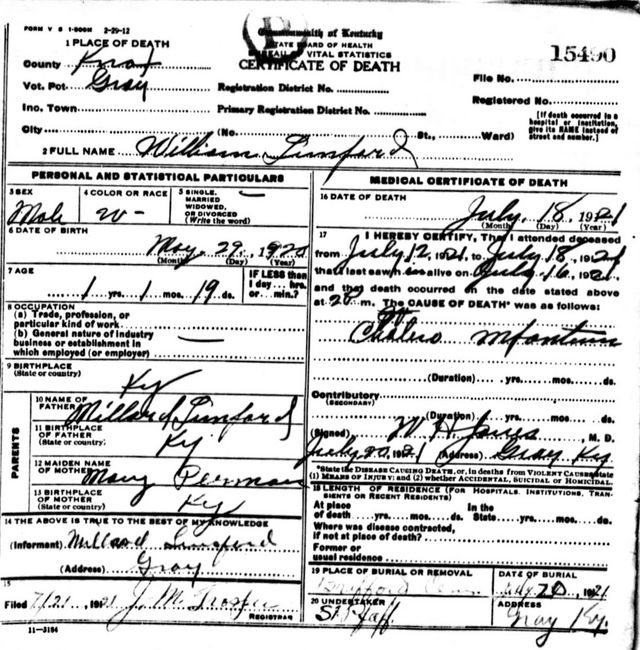 FORM V S 1-500M 2-29-12
Commonwealth of Kentucky
STATE BOARD OF HEALTH
BUREAU OF VITAL STATISTICS
CERTIFICATE OF DEATH
15490
1 PLACE OF DEATH
County Knox
Vot. Pct Gray
Inc. Town
City
Registration District No.
Primary Registration District No.
(No. St., Ward)
File No.
Registered No.
[If death occurred in a hospital or institution, give its NAME instead of street and number.]
2 FULL NAME William Lunford
PERSONAL AND STATISTICAL PARTICULARS
3 SEX
Male
4 COLOR OR RACE
W-
5 SINGLE, MARRIED WIDOWED, OR DIVORCED (Write the word)
6 DATE OF BIRTH
May 29, 1920
(Month) (Day) (Year)
7 AGE
1 yrs. 1 mos. 19 ds.
IF LESS than I day... hrs. or... min.?
8 OCCUPATION
(a) Trade, profession, or particular kind of work
(b) General nature of industry business or establishment in which employed (or employer)
9 BIRTHPLACE
(State or country)
Ky
PARENTS
10 NAME OF FATHER Millard Lunford
11 BIRTHPLACE OF FATHER (State or country) Ky
12 MAIDEN NAME OF MOTHER Mary
13 BIRTHPLACE OF MOTHER (State or country) Ky
14 THE ABOVE IS TRUE TO THE BEST OF MY KNOWLEDGE
(Informant) Millard Lunford
(Address) Gray
15
Filed 7/21 1921 J. M.
REGISTRAR
11-3184
MEDICAL CERTIFICATE OF DEATH
16 DATE OF DEATH
July, 18, 1921
(Month) (Day) (Year)
17 I HEREBY CERTIFY, That I attended deceased
from July 12, 1921, to July 18, 1921
that I last saw alive on July 16, 1921,
and that death occurred on the date stated above
at m. The CAUSE OF DEATH* was as follows:
Cholera Infantum
(Duration) yrs. mos. ds.
Contributory
(SECONDARY)
(Duration) yrs. mos. ds.
(Signed) W H Jones, M. D.
July 20, 1921 (Address) Gray Ky
*State the DISEASE CAUSING DEATH, or, in deaths from VIOLENT CAUSES, state (1) MEANS OF INJURY; and (2) whether ACCIDENTAL, SUICIDAL OR HOMICIDAL.
18 LENGTH OF RESIDENCE (FOR HOSPITALS, INSTITUTIONS, TRANSIENTS OR RECENT RESIDENTS)
At place of death yrs. mos. ds. In the State yrs. mos. ds.
Where was disease contracted, if not at place of death?
Former or usual residence
19 PLACE OF BURIAL OR REMOVAL
DATE OF BURIAL
July 20, 1921
20 UNDERTAKER
ADDRESS
Gray Ky.